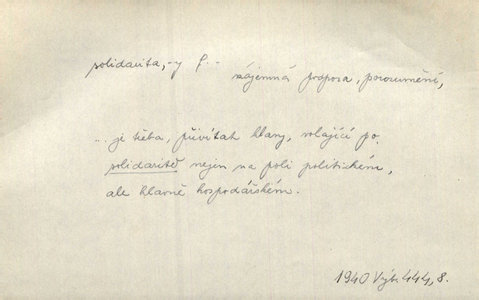 solidarita, -y f. -
vzájemná podpora, porozumění,
... je třeba, přivítat hlasy, volající po
solidaritě nejen na poli politickém,
ale hlavně hospodářském.
1940 Výb. 444, 8.